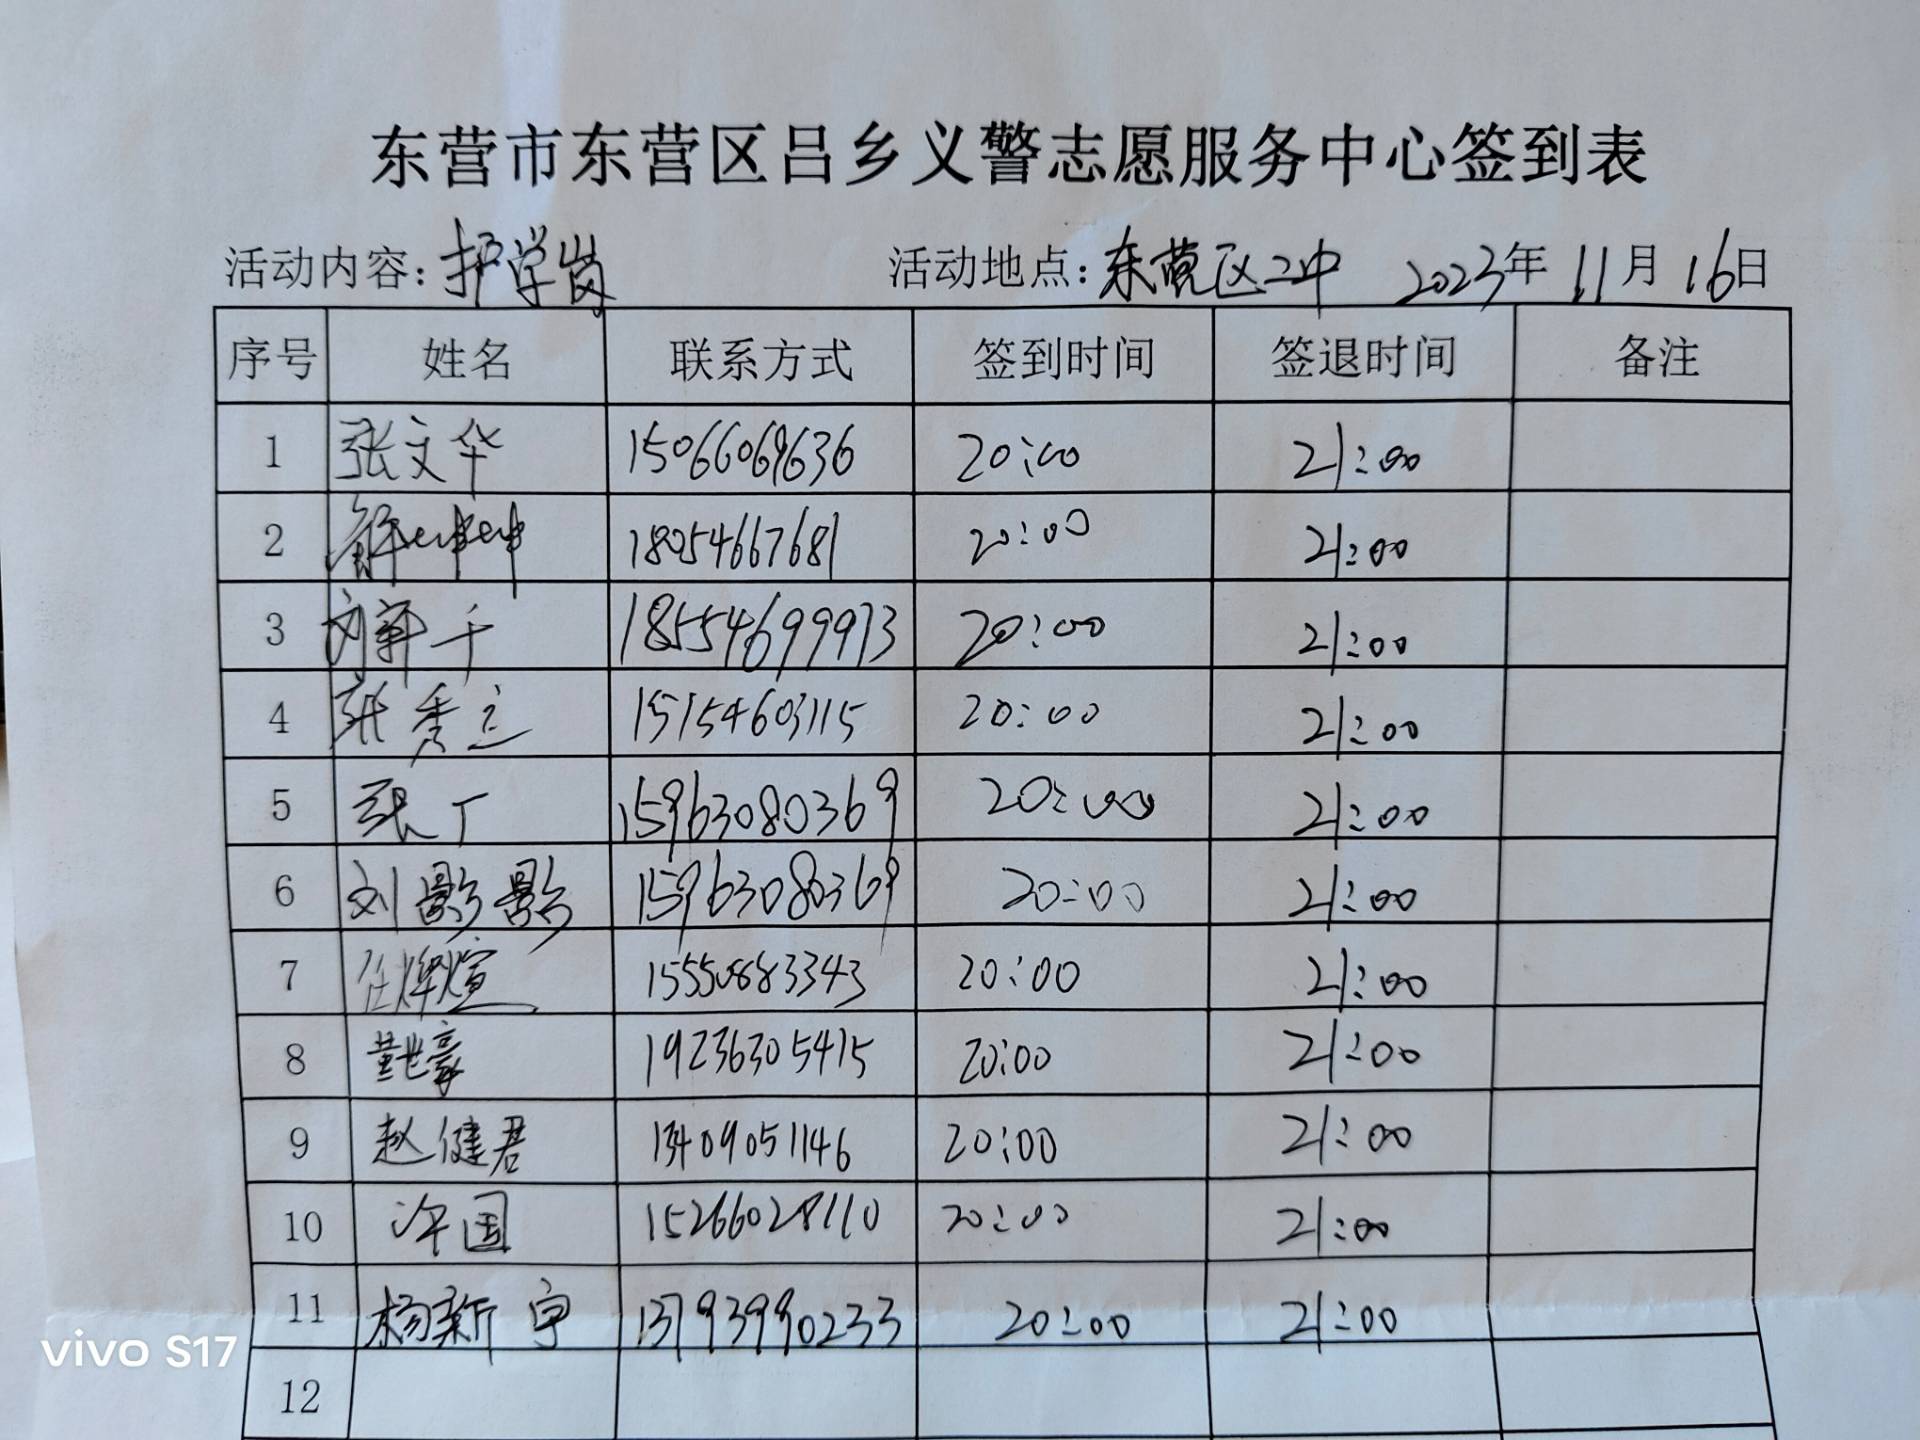 东营市东营区吕乡义警志愿服务中心签到表
活动内容：护学岗 活动地点：东营区二中 2023年11月16日
序号 姓名 联系方式 签到时间 签退时间 备注
1 张文华 15066069636 20:00 21:00
2 解坤坤 18054667681 20:00 21:00
3 18554699973 20:00 21:00
4 张秀立 15154603115 20:00 21:00
5 张丁 15963080369 20:00 21:00
6 刘影影 15963080369 20:00 21:00
7 任烨煊 15550883343 20:00 21:00
8 董世豪 19236305415 20:00 21:00
9 赵健君 13409051146 20:00 21:00
10 许国 15266028110 20:00 21:00
11 杨新宇 13793990233 20:00 21:00
12
vivo S17